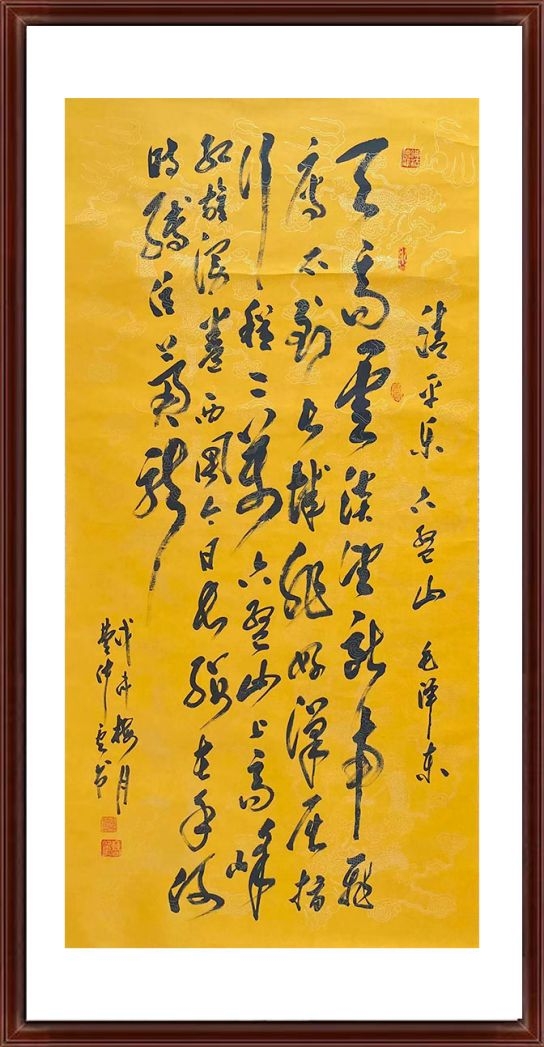 清平乐 六盘山 毛泽东
天高雲淡望断南飛
雁不到长城非好漢屈指
行程二萬六盘山上高峰
红旗漫卷西風今日长缨在手何
时缚住蒼龍
梅月
雲书